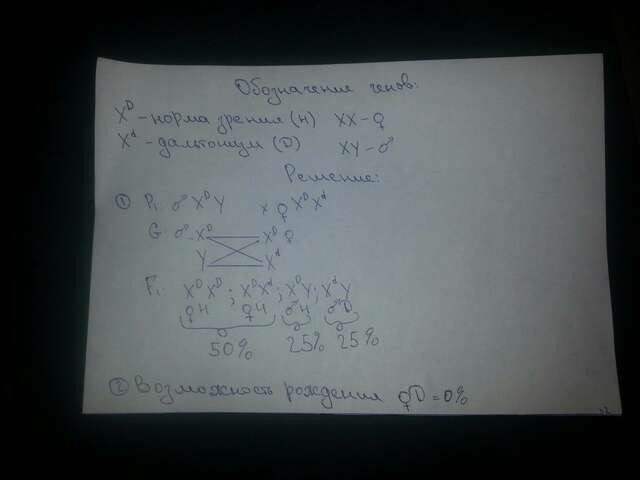 Обозначение генов:
X^D - норма зрения (н) XX - ♀
X^d - дальтонизм (D) XY - ♂
Решение:
① P₁ ♂ X^D Y x ♀ X^D X^d
G: ♂ X^D X^D ♀
Y X^d
F₁: X^D X^D ; X^D X^d ; X^D Y ; X^d Y
♀H ♀H ♂H ♂D
50% 25% 25%
② Возможность рождения ♀D = 0%